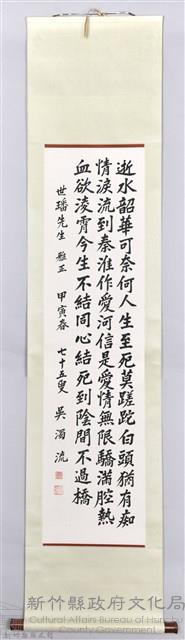 逝水韶華可奈何人生至死莫蹉跎白頭猶有痴
情淚流到秦淮作愛河信是愛情無限驕滿腔熱
血欲淩霄今生不結同心結死到陰間不過橋
世璠先生 雅正 甲寅春 七十五叟 吳濁流
新竹縣政府文化局
Cultural Affairs Bureau of Hsinchu
County Government